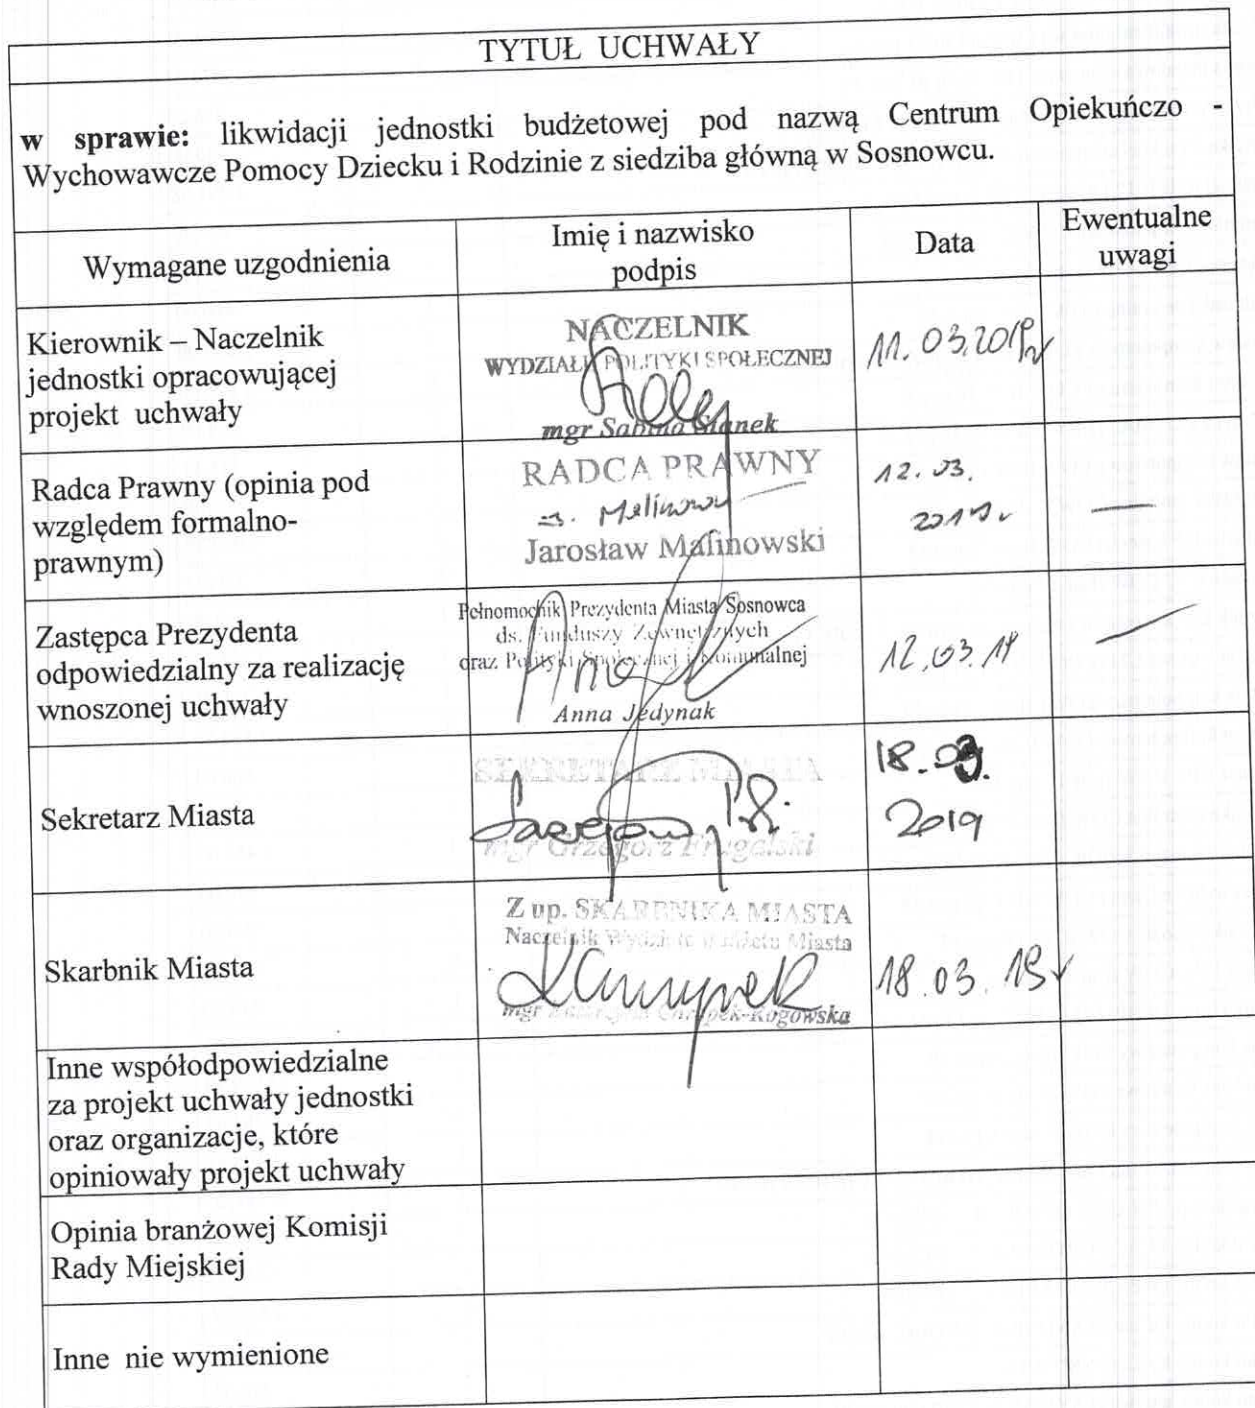 TYTUŁ UCHWAŁY
w sprawie: likwidacji jednostki budżetowej pod nazwą Centrum Opiekuńczo -
Wychowawcze Pomocy Dziecku i Rodzinie z siedziba główną w Sosnowcu.
Wymagane uzgodnienia
Imię i nazwisko
podpis
Data
Ewentualne
uwagi
Kierownik – Naczelnik
jednostki opracowującej
projekt uchwały
NACZELNIK
WYDZIAŁU POLITYKI SPOŁECZNEJ
mgr Sabina Stanek
11.03.2019r
Radca Prawny (opinia pod
względem formalno-
prawnym)
RADCA PRAWNY
Jarosław Malinowski
12.03.
2019r
Zastępca Prezydenta
odpowiedzialny za realizację
wnoszonej uchwały
Pełnomocnik Prezydenta Miasta Sosnowca
ds. Funduszy Zewnętrznych
oraz Polityki Społecznej i Komunalnej
Anna Jedynak
12.03.19
Sekretarz Miasta
SEKRETARZ MIASTA
mgr Grzegorz Frugalski
18.03.
2019
Skarbnik Miasta
Z up. SKARBNIKA MIASTA
Naczelnik Wydziału Budżetu Miasta
mgr Katarzyna Czupek-Rogowska
18.03.19r
Inne współodpowiedzialne
za projekt uchwały jednostki
oraz organizacje, które
opiniowały projekt uchwały
Opinia branżowej Komisji
Rady Miejskiej
Inne nie wymienione